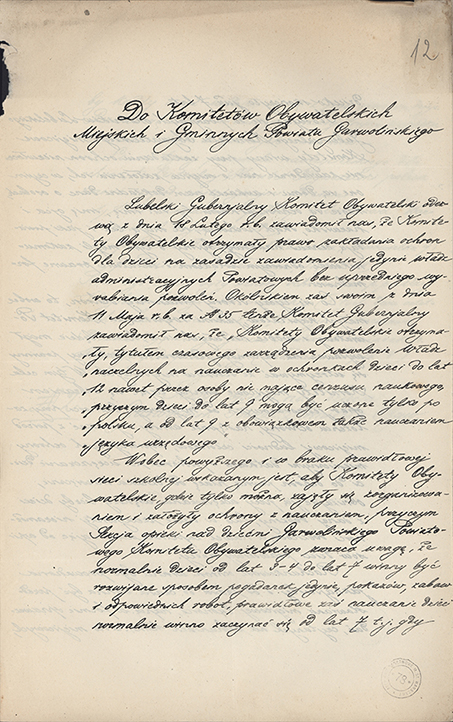 12
Do Komitetów Obywatelskich
Miejskich i Gminnych Powiatu Garwolińskiego
Lubelski Gubernjalny Komitet Obywatelski odez
wą z dnia 18 Lutego r.b. zawiadomił nas, że Komite-
ty Obywatelskie otrzymały prawo zakładania ochron
dla dzieci na zasadzie zawiadomienia jedynie władz
administracyjnych Powiatowych bez uprzedniego wy-
rabiania pozwoleń. Okólnikiem zaś swoim z dnia
11 Maja r.b. za № 35 tenże Komitet Gubernjalny
zawiadomił nas, że „Komitety Obywatelskie otrzyma-
„ły, tytułem czasowego zarządzenia pozwolenie władz
„naczelnych na nauczanie w ochronkach dzieci do lat
„12 nawet przez osoby nie mające cenzusu naukowego,
„przyczym dzieci do lat 9 mogą być uczone tylko po
„polsku, a od lat 9 z obowiązkowem nauczaniem
„języka urzędowego"
Wobec powyższego i w braku prawidłowej
sieci szkolnej wskazanym jest, aby Komitety Oby-
watelskie, gdzie tylko można, zajęły się zorganizowa-
niem i założyły ochrony z nauczaniem, przyczym
Sekcja opieki nad dziećmi Garwolińskiego Powiato-
wego Komitetu Obywatelskiego zwraca uwagę, że
normalnie dzieci od lat 3-4 do lat 7 winny być
rozwijane sposobem pogadanek jedynie, pokazów, zabaw
i odpowiednich robót, prawidłowe zaś nauczanie dzieci
normalnie winno zaczynać się od lat 7 t.j. gdy
79